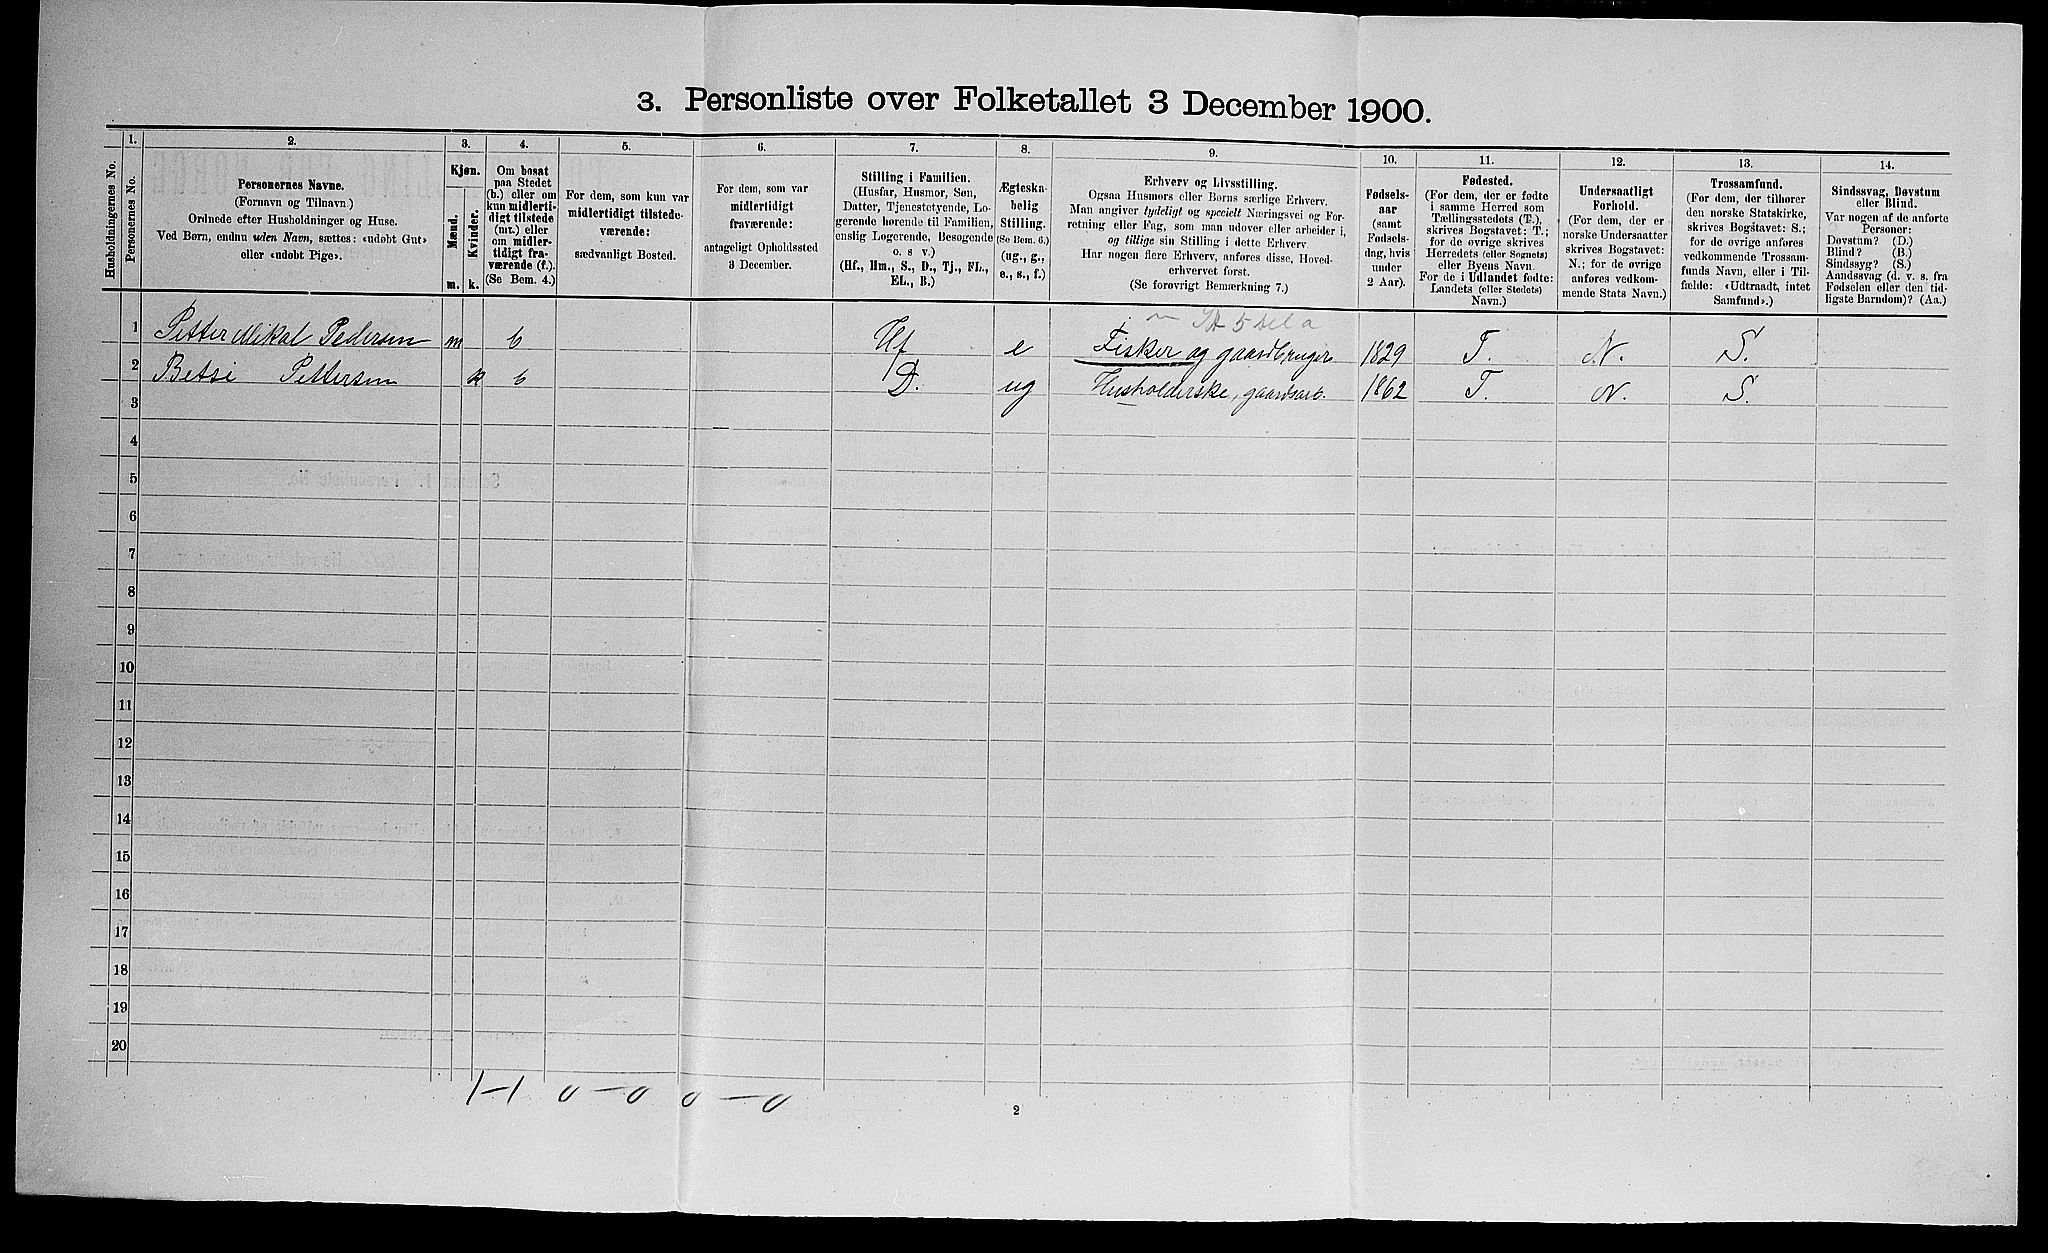 3. Personliste over Folketallet 3 December 1900.
Husholdningernes No.
1.
Personernes No.
2.
Personernes Navne.
(Fornavn og Tilnavn)
Ordnede efter Husholdninger og Huse.
Ved Børn, endnu uden Navn, sættes: «udøbt Gut»
eller «udøbt Pige».
3.
Kjøn.
Mænd.
Kvinder.
m. k.
4.
Om bosat
paa Stedet
(b.) eller om
kun midlerti-
digt tilstede
(mt.) eller
om midler-
tidigt fra-
værende (f.).
(Se Bem. 4.)
5.
For dem, som kun var
midlertidigt tilstede-
værende:
sædvanligt Bosted.
6.
For dem, som var
midlertidigt
fraværende:
antageligt Opholdssted
3 December.
7.
Stilling i Familien.
(Husfar, Husmor, Søn,
Datter, Tjenestetyende, Lo-
gerende hørende til Familien,
enslig Logerende, Besøgende
o. s v.)
(Hf., Hm., S., D., Tj., FL.,
EL., B.)
8.
Ægteska-
belig
Stilling.
(Se Bem. 6.)
(ug., g.,
e., s., f.)
9.
Erhverv og Livsstilling.
Ogsaa Husmors eller Børns særlige Erhverv.
Man angiver tydeligt og specielt Næringsvei og For-
retning eller Fag, som man udøver eller arbeider i,
og tillige sin Stilling i dette Erhverv.
Har nogen flere Erhverv, anføres disse, Hoved-
erhvervet først.
(Se forøvrigt Bemærkning 7.)
10.
Fødsels-
aar
(samt
Fødsels-
dag, hvis
under
2 Aar).
11.
Fødested.
(For dem, der er fødte
i samme Herred som
Tællingsstedets (T.),
skrives Bogstavet: T.;
for de øvrige skrives
Herredets (eller Sognets)
eller Byens Navn.
For de i Udlandet fødte:
Landets (eller Stedets)
Navn.)
12.
Undersaatligt
Forhold.
(For dem, der er
norske Undersaatter
skrives Bogstavet:
N.; for de øvrige
anføres vedkom-
mende Stats Navn.)
13.
Trossamfund.
(For dem, der tilhører
den norske Statskirke,
skrives Bogstavet: S.;
for de øvrige anføres
vedkommende Trossam-
funds Navn, eller i Til-
fælde: «Udtraadt, intet
Samfund».)
14.
Sindssvag, Døvstum
eller Blind.
Var nogen af de anførte
Personer:
Døvstum? (D.)
Blind? (B.)
Sindssyg? (S.)
Aandssvag (d. v. s. fra
Fødselen eller den tid-
ligste Barndom)? (Aa.)
1 Petter Mikal Pedersen m b Hf e Fisker og gaardbruger 1829 T. N. S.
2 Betsi Pettersen k b D. ug Husholderske, gaardsarb. 1862 T. N. S.
3
4
5
6
7
8
9
10
11
12
13
14
15
16
17
18
19
20
1-1 0-0 0-0
2